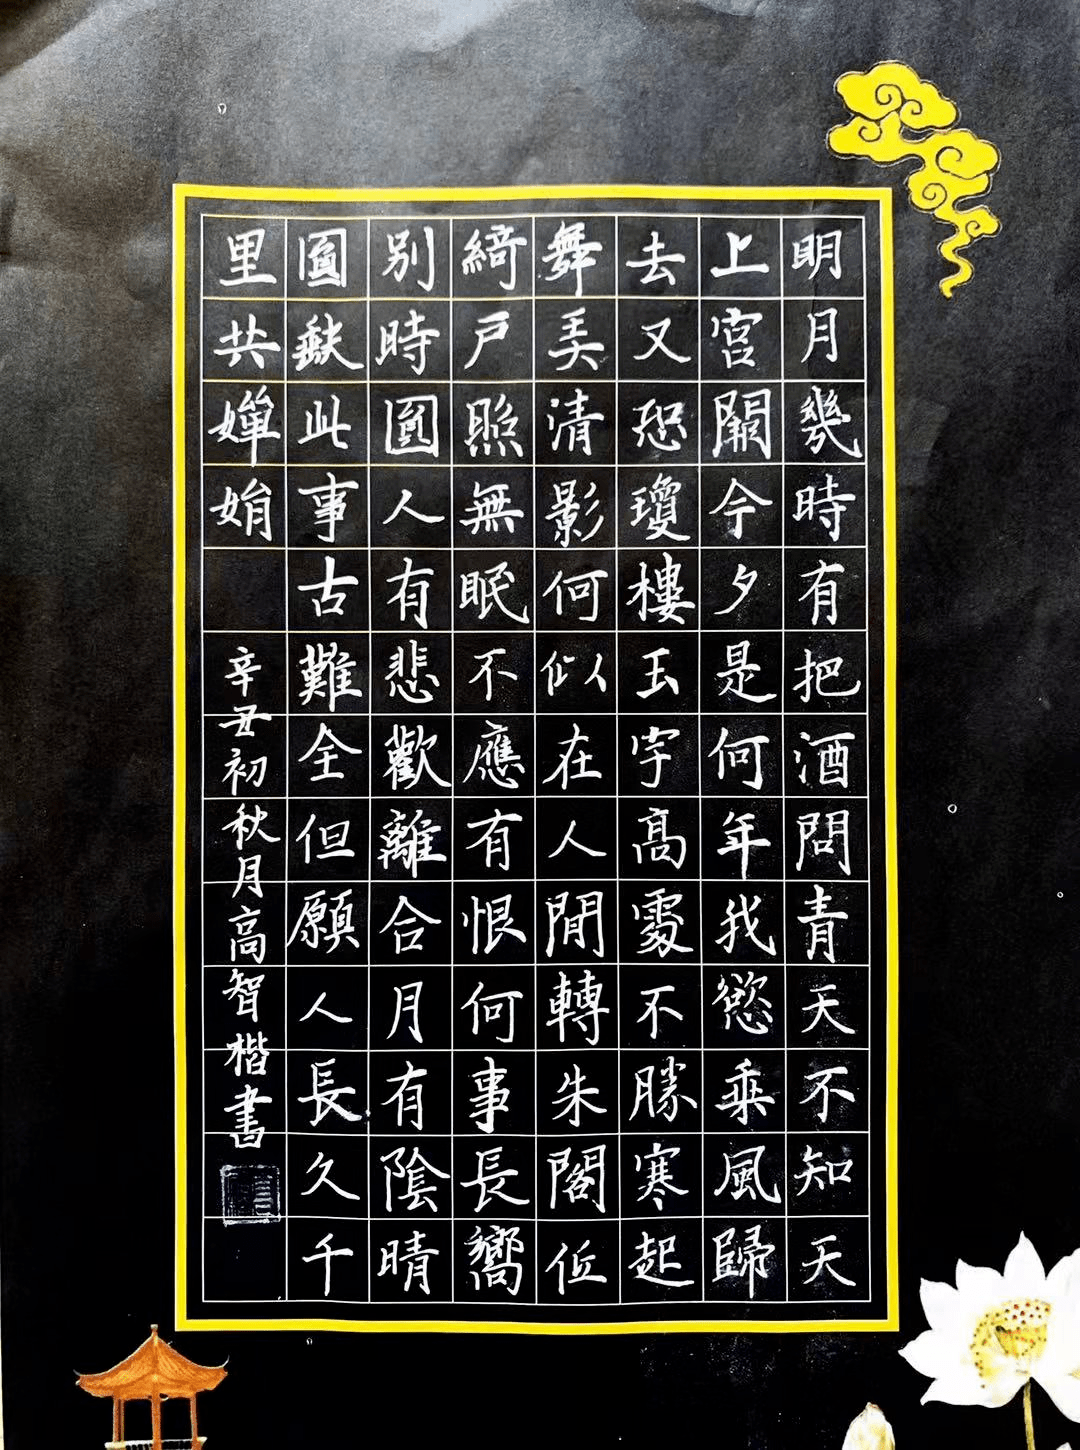 明月幾時有把酒問青天不知天
上宮闕今夕是何年我慾乘風歸
去又恐瓊樓玉宇高處不勝寒起
舞弄清影何似在人閒轉朱閣低
綺戶照無眠不應有恨何事長嚮
別時圓人有悲歡離合月有陰晴
圓缺此事古難全但願人長久千
里共嬋娟
辛丑初秋月高智楷書